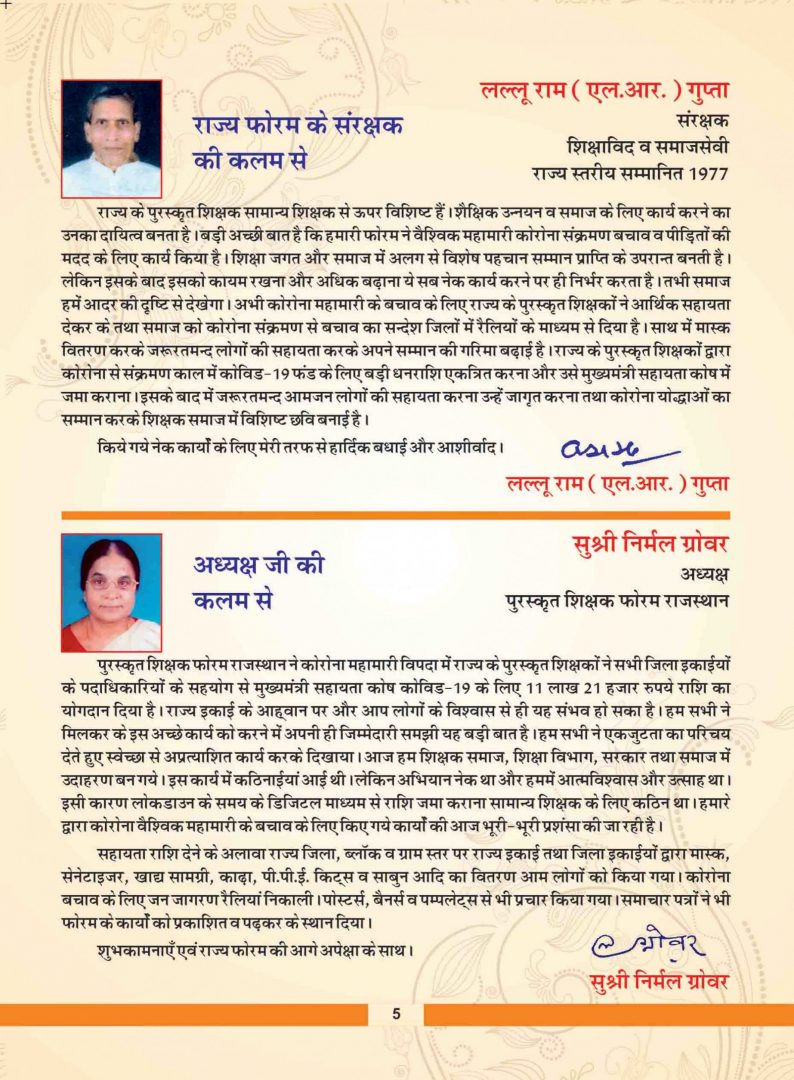 लल्लू राम ( एल.आर. ) गुप्ता
राज्य फोरम के संरक्षक
की कलम से
संरक्षक
शिक्षाविद व समाजसेवी
राज्य स्तरीय सम्मानित 1977
राज्य के पुरस्कृत शिक्षक सामान्य शिक्षक से ऊपर विशिष्ट हैं। शैक्षिक उन्नयन व समाज के लिए कार्य करने का
उनका दायित्व बनता है। बड़ी अच्छी बात है कि हमारी फोरम ने वैश्विक महामारी कोरोना संक्रमण बचाव व पीड़ितों की
मदद के लिए कार्य किया है। शिक्षा जगत और समाज में अलग से विशेष पहचान सम्मान प्राप्ति के उपरान्त बनती है।
लेकिन इसके बाद इसको कायम रखना और अधिक बढ़ाना ये सब नेक कार्य करने पर ही निर्भर करता है। तभी समाज
हमें आदर की दृष्टि से देखेगा। अभी कोरोना महामारी के बचाव के लिए राज्य के पुरस्कृत शिक्षकों ने आर्थिक सहायता
देकर के तथा समाज को कोरोना संक्रमण से बचाव का सन्देश जिलों में रैलियों के माध्यम से दिया है। साथ में मास्क
वितरण करके जरूरतमन्द लोगों की सहायता करके अपने सम्मान की गरिमा बढ़ाई है। राज्य के पुरस्कृत शिक्षकों द्वारा
कोरोना से संक्रमण काल में कोविड-19 फंड के लिए बड़ी धनराशि एकत्रित करना और उसे मुख्यमंत्री सहायता कोष में
जमा कराना। इसके बाद में जरूरतमन्द आमजन लोगों की सहायता करना उन्हें जागृत करना तथा कोरोना योद्धाओं का
सम्मान करके शिक्षक समाज में विशिष्ट छवि बनाई है।
किये गये नेक कार्यों के लिए मेरी तरफ से हार्दिक बधाई और आशीर्वाद।
लल्लू राम ( एल.आर. ) गुप्ता
सुश्री निर्मल ग्रोवर
अध्यक्ष जी की
कलम से
अध्यक्ष
पुरस्कृत शिक्षक फोरम राजस्थान
पुरस्कृत शिक्षक फोरम राजस्थान ने कोरोना महामारी विपदा में राज्य के पुरस्कृत शिक्षकों ने सभी जिला इकाईयों
के पदाधिकारियों के सहयोग से मुख्यमंत्री सहायता कोष कोविड-19 के लिए 11 लाख 21 हजार रुपये राशि का
योगदान दिया है। राज्य इकाई के आह्वान पर और आप लोगों के विश्वास से ही यह संभव हो सका है। हम सभी ने
मिलकर के इस अच्छे कार्य को करने में अपनी ही जिम्मेदारी समझी यह बड़ी बात है। हम सभी ने एकजुटता का परिचय
देते हुए स्वेच्छा से अप्रत्याशित कार्य करके दिखाया। आज हम शिक्षक समाज, शिक्षा विभाग, सरकार तथा समाज में
उदाहरण बन गये। इस कार्य में कठिनाईयां आई थी। लेकिन अभियान नेक था और हममें आत्मविश्वास और उत्साह था।
इसी कारण लोकडाउन के समय के डिजिटल माध्यम से राशि जमा कराना सामान्य शिक्षक के लिए कठिन था। हमारे
द्वारा कोरोना वैश्विक महामारी के बचाव के लिए किए गये कार्यों की आज भूरी-भूरी प्रशंसा की जा रही है।
सहायता राशि देने के अलावा राज्य जिला, ब्लॉक व ग्राम स्तर पर राज्य इकाई तथा जिला इकाईयों द्वारा मास्क,
सेनेटाइजर, खाद्य सामग्री, काढ़ा, पी.पी.ई. किट्स व साबुन आदि का वितरण आम लोगों को किया गया। कोरोना
बचाव के लिए जन जागरण रैलियां निकाली। पोस्टर्स, बैनर्स व पम्पलेट्स से भी प्रचार किया गया। समाचार पत्रों ने भी
फोरम के कार्यों को प्रकाशित व पढ़कर के स्थान दिया।
शुभकामनाएँ एवं राज्य फोरम की आगे अपेक्षा के साथ।
ग्रोवर
सुश्री निर्मल ग्रोवर
5